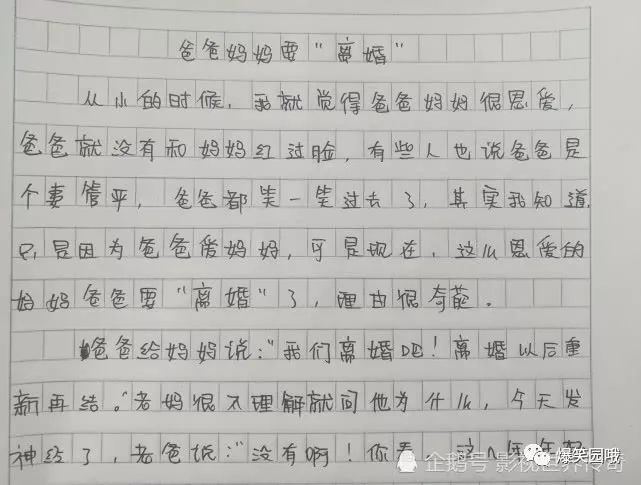 爸爸妈妈要“离婚”
从小的时候，我就觉得爸爸妈妈很恩爱，
爸爸就没有和妈妈红过脸，有些人也说爸爸是
个妻管平，爸爸都笑一笑过去了，其实我知道，
只是因为爸爸爱妈妈，可是现在，这么恩爱的
妈妈爸爸要“离婚”了，理由很奇葩。
爸爸给妈妈说：“我们离婚吧！离婚以后重
新再结。”老妈很不理解就问他为什么，今天发
神经了，老爸说：“没有啊！你看，这几年
企鹅号 影视世界传奇
爆笑园哦